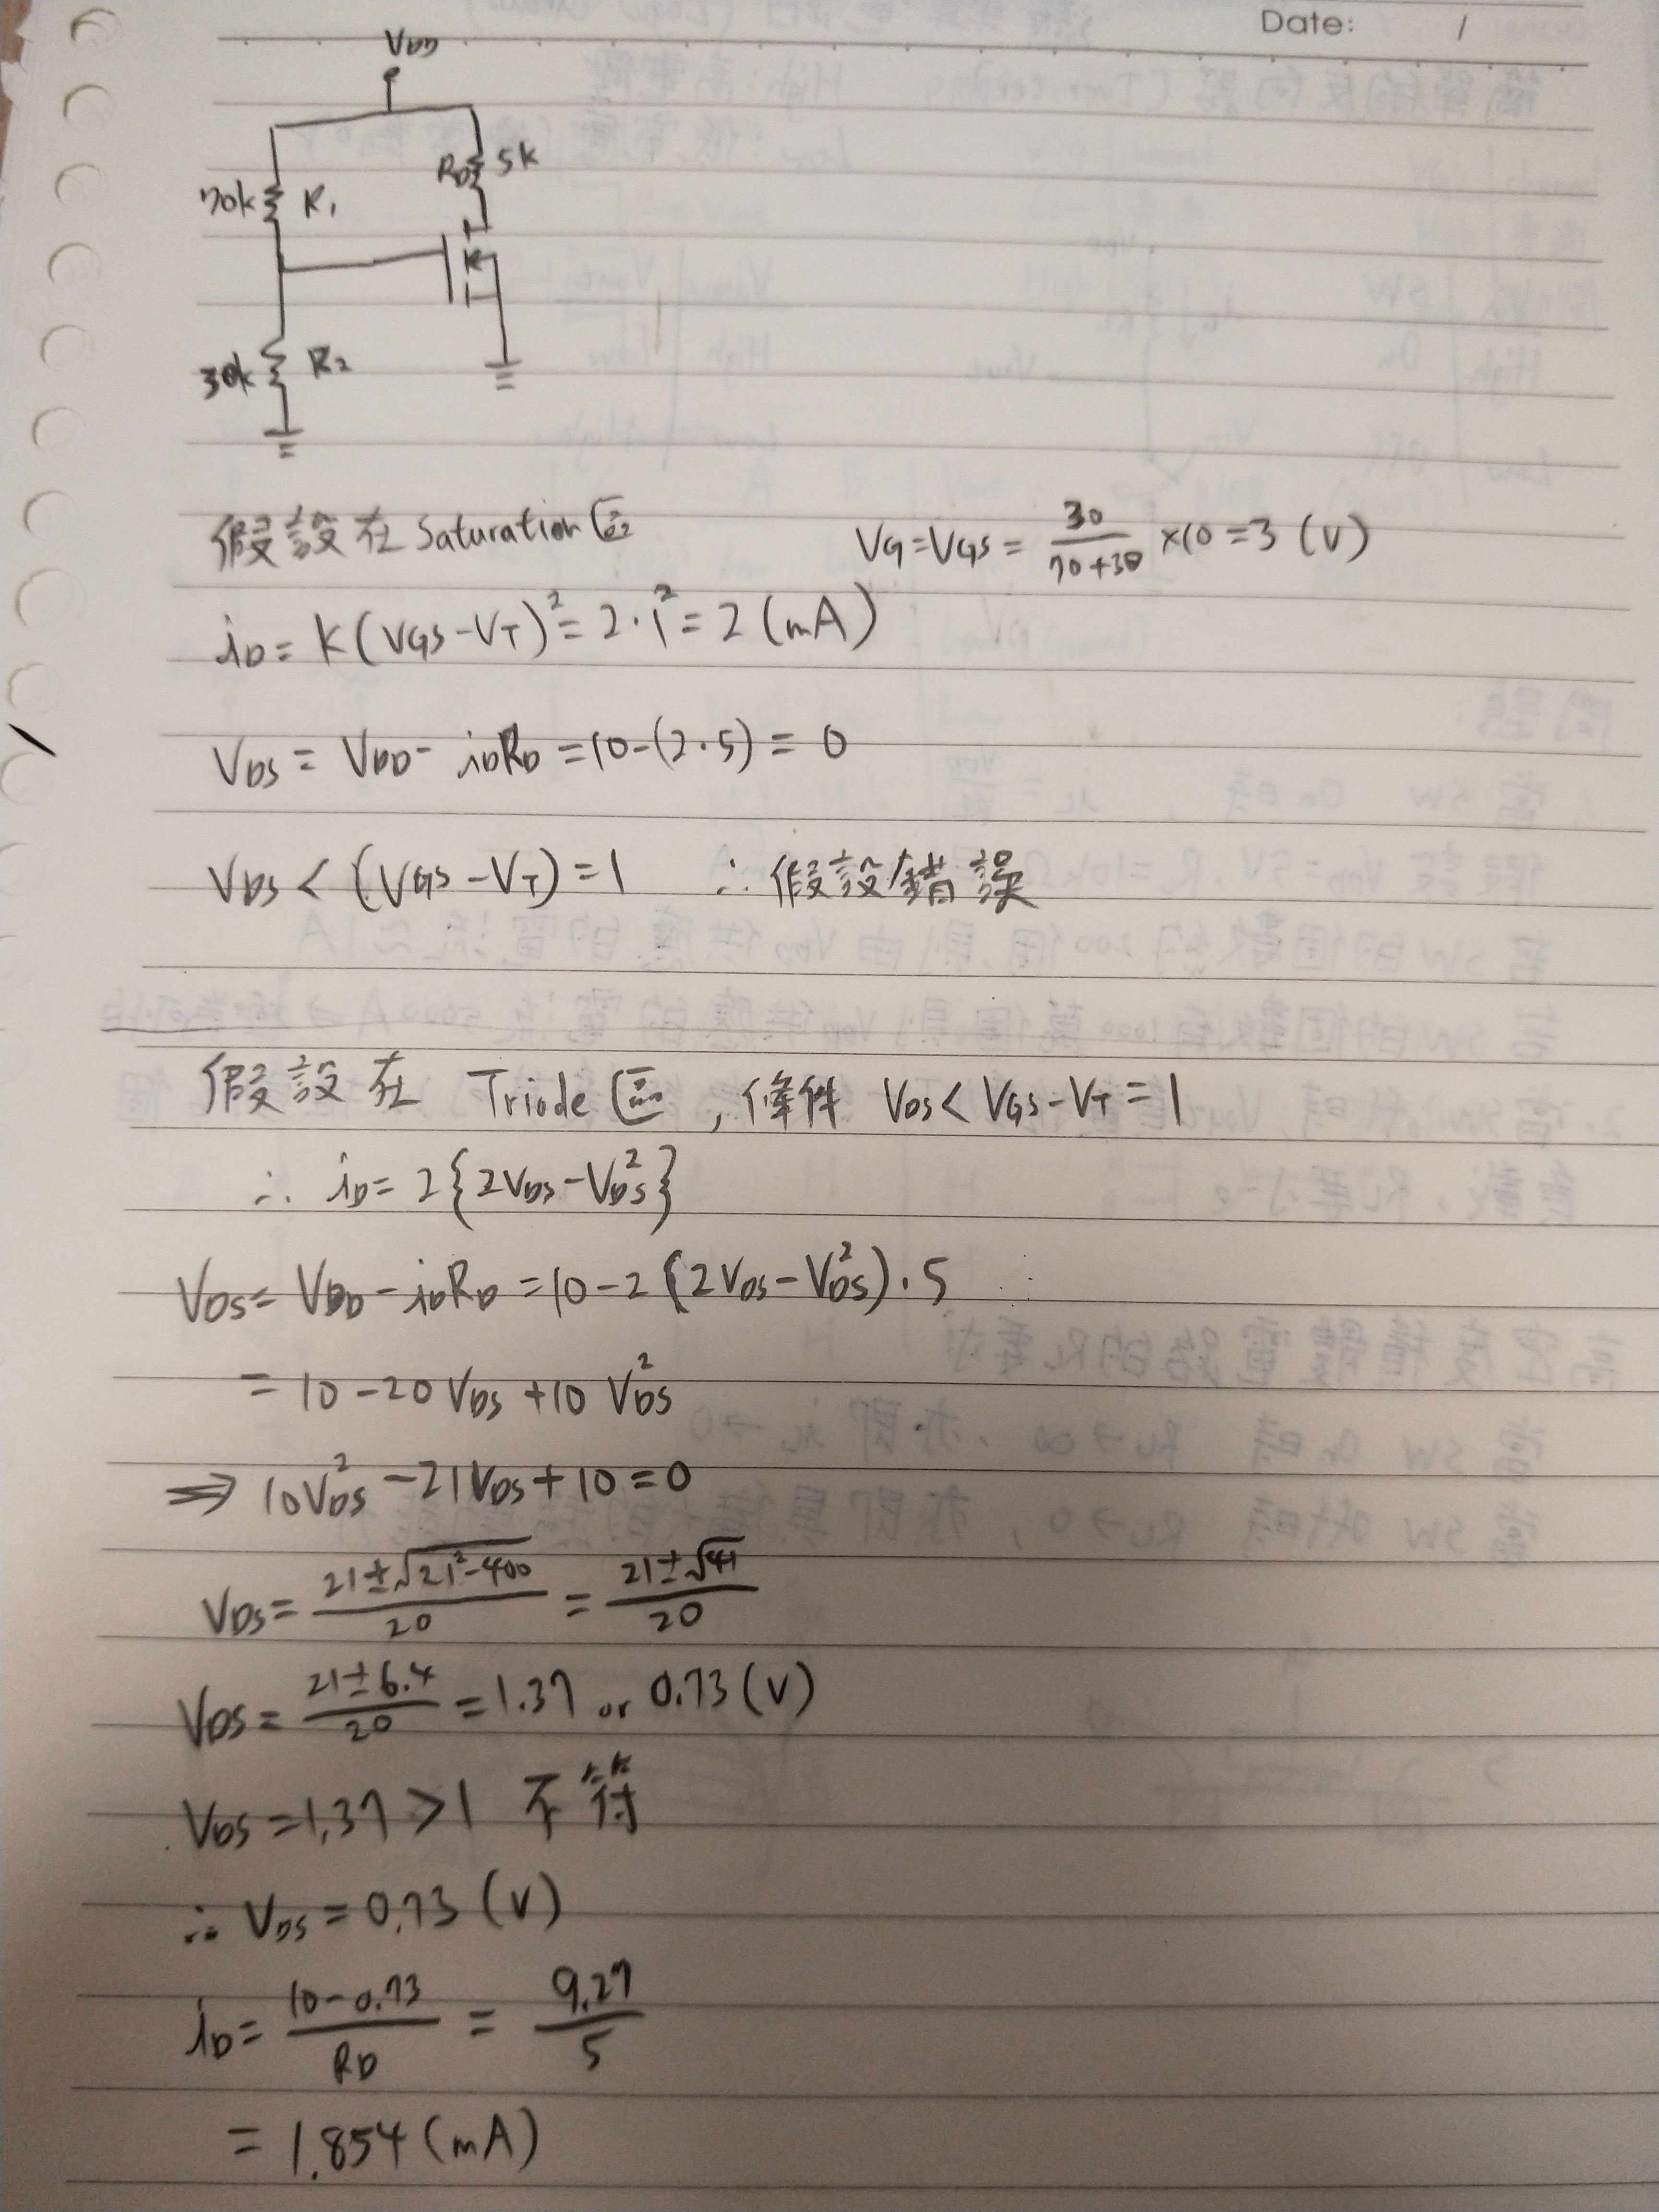 Date: /
VDD
70k R₁ RD 5k
30k R₂
假設在 Saturation 區 VG=VGS = 30/(70+30) ×10 = 3 (V)
iD = K(VGS-VT)² = 2·1² = 2 (mA)
VDS = VDD - iDRD = 10-(2·5) = 0
VDS < (VGS-VT) = 1 ∴ 假設錯誤
假設在 Triode 區, 條件 VDS < VGS-VT = 1
∴ iD = 2{2VDS-VDS²}
VDS = VDD - iDRD = 10-2(2VDS-VDS²)·5
= 10-20VDS+10VDS²
⇒ 10VDS²-21VDS+10=0
VDS = (21±√(21²-400))/20 = (21±√41)/20
VDS = (21±6.4)/20 = 1.37 or 0.73 (V)
VDS = 1.37 > 1 不符
∴ VDS = 0.73 (V)
iD = (10-0.73)/RD = 9.27/5
= 1.854 (mA)